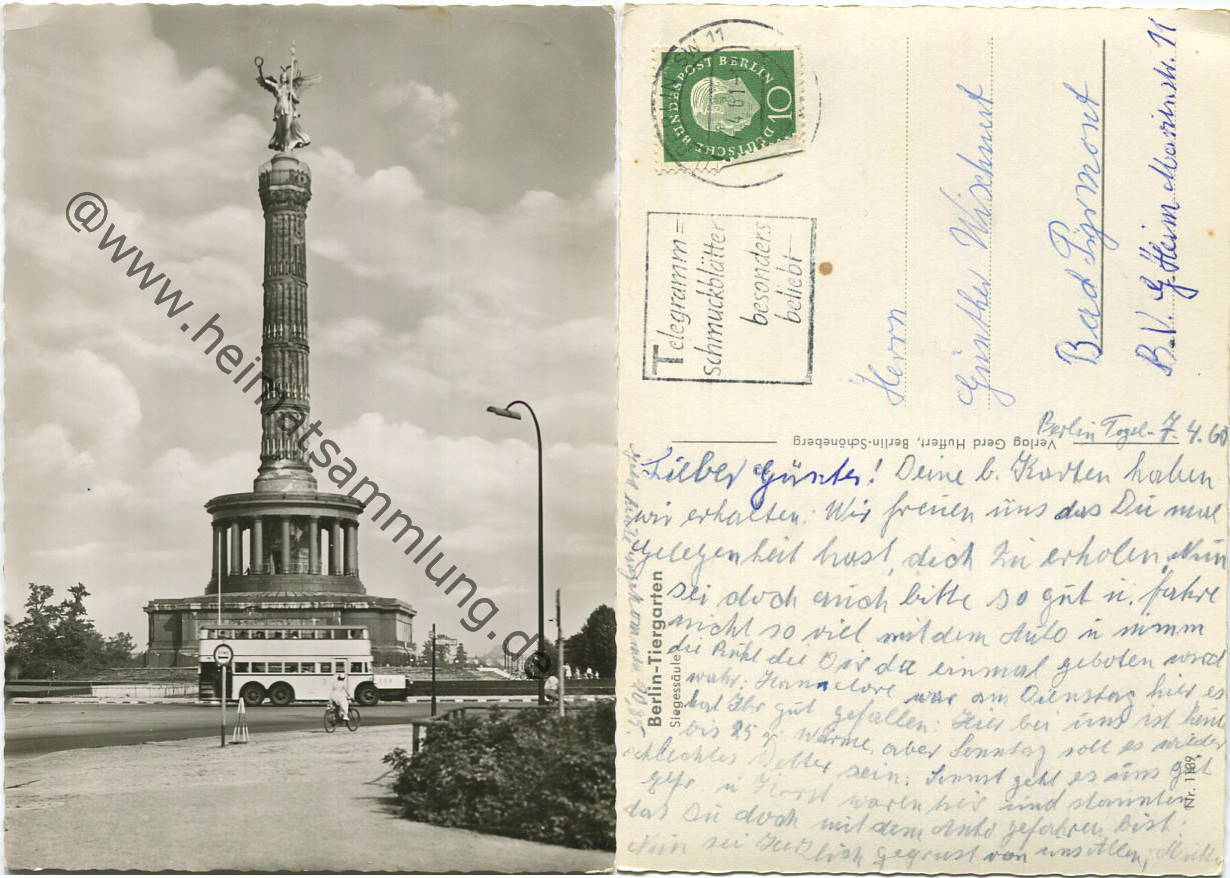 @www.heimatsammlung.de
SW 11
DEUTSCHE BUNDESPOST BERLIN
10
Telegramm=
schmuckblätter
besonders
beliebt
Herrn
Günther Wischnust
Bad Pyrmont
B.V. G Heim Marienstr. 11
Verlag Gerd Huffert, Berlin-Schöneberg
Berlin-Tiergarten
Siegessäule
Nr. 1189
Berlin Tegel - 7. 4. 60
Lieber Günter! Deine b. Karten haben
wir erhalten. Wir freuen uns das Du mal
gelegenheit hast, dich zu erholen, Nun
sei doch auch bitte so gut u. fahre
nicht so viel mit dem Auto u nimm
die Ruhe die Dir da einmal geboten wird
wahr: Hannelore war am Dienstag hier es
hat Ihr gut gefallen: Hier bei uns ist heut
bis 25 gr Wärme aber Sonntag soll es wieder
schlechtes Wetter sein: Sonnst geht es uns gut
u Horst waren hier und staunten
das Du doch mit dem Auto gefahren bist:
Nun sei Herzlich gegrüst von uns Allen, Mutter